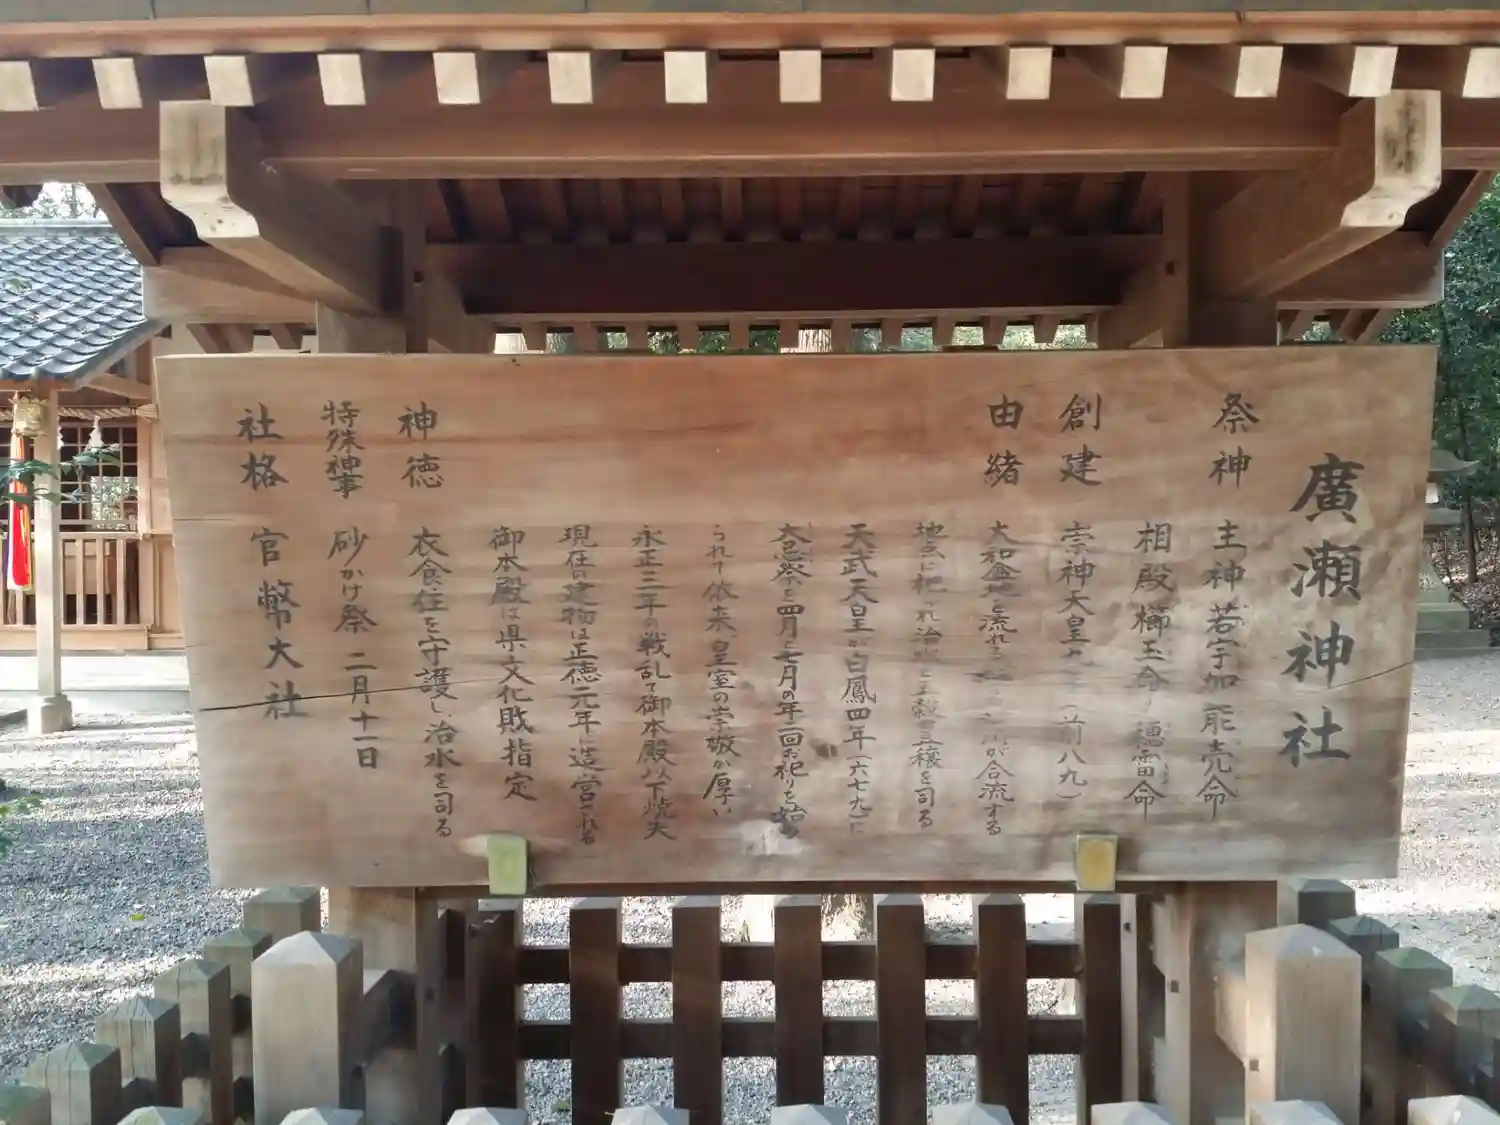 廣瀬神社
祭神 主神 若宇加能売命
相殿 櫛玉命 穂雷命
創建 崇神天皇九 (前八九)
由緒 大和盆地を流れる が合流する
地点に祀られ治水と五穀豊穣を司る
天武天皇が白鳳四年(六七九)に
大忌祭を四月と七月の年二回お祀りを始め
られて依来、皇室の崇敬が厚い
永正三年の戦乱で御本殿以下焼失
現在の建物は正徳元年に造営される
御本殿は県文化財指定
神徳 衣食住を守護し治水を司る
特殊神事 砂かけ祭 二月十一日
社格 官幣大社